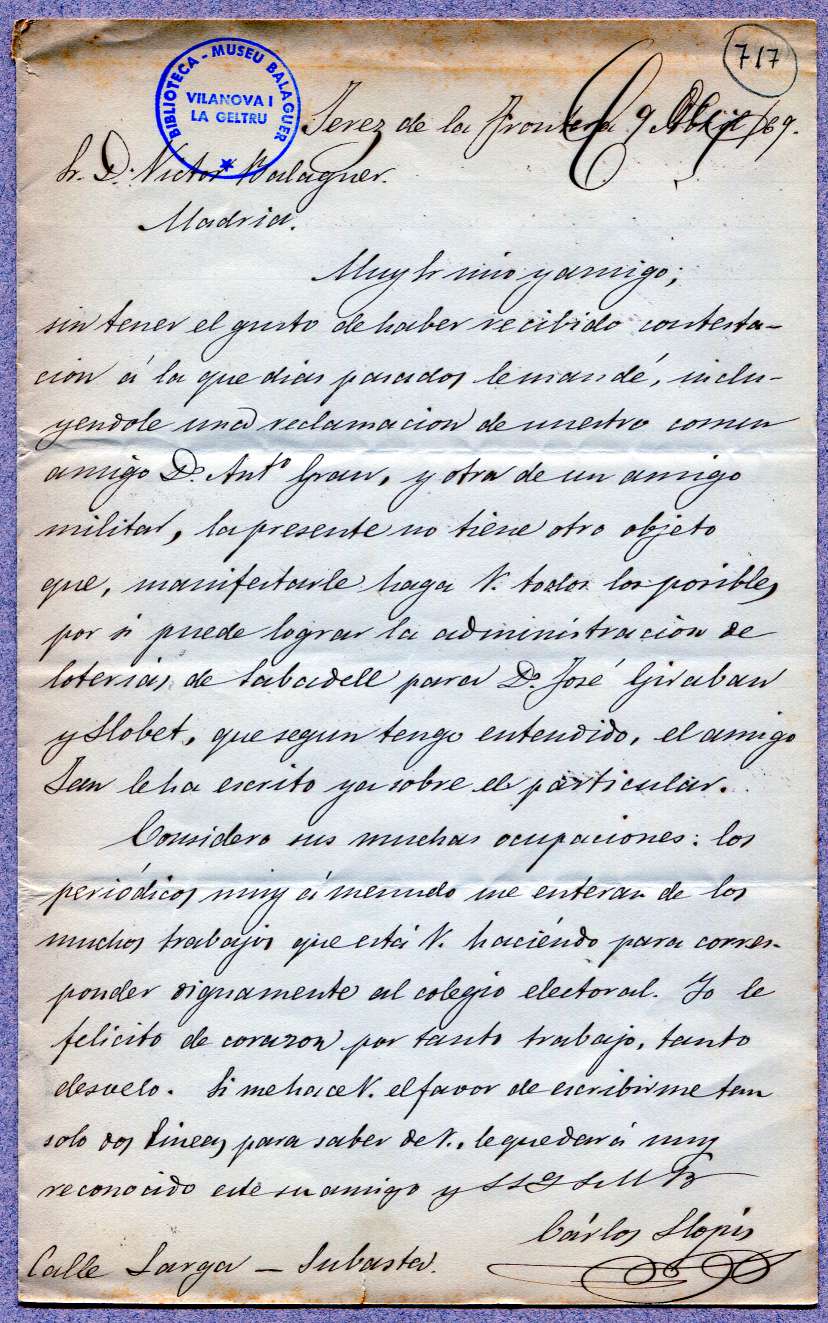 717
BIBLIOTECA - MUSEU BALAGUER
VILANOVA I
LA GELTRU
Jerez de la Frontera 9 Abril /69.
Sr. Dn. Victor Balaguer.
Madrid.
Muy Sr mio y amigo;
sin tener el gusto de haber recibido contesta-
cion á la que dias pasados le mandé, inclu-
yendole una reclamacion de nuestro comun
amigo Dn. Anto. Grau, y otra de un amigo
militar, la presente no tiene otro objeto
que, manifestarle haga V. todos los posibles
por si puede lograr la administracion de
loterias de Sabadell para Dn. José Giraban
y Llobet, que segun tengo entendido, el amigo
le ha escrito ya sobre el particular.
Considero sus muchas ocupaciones: los
periódicos muy á menudo me enteran de los
muchos trabajos que está V. haciendo para corres-
ponder dignamente al colegio electoral. Yo le
felicito de corazon por tanto trabajo, tanto
desvelo. Si me hace V. el favor de escribirme tan
solo dos lineas, para saber de V., le quedará muy
reconocido este su amigo y S S Q S M B
Cárlos Llopis
Calle Larga — Subasta.